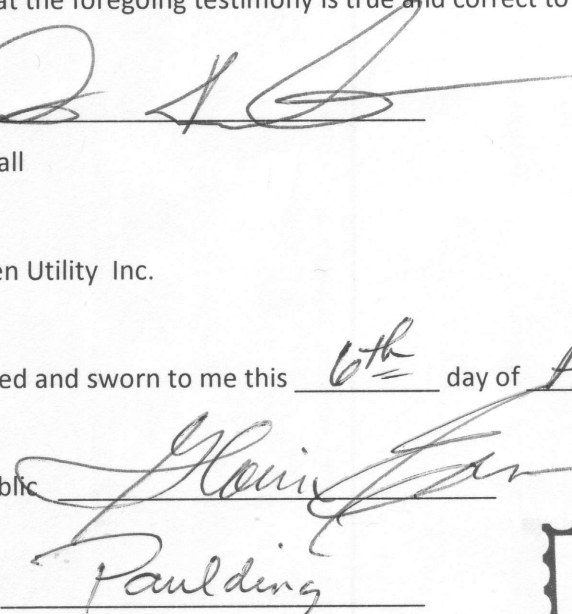 at the foregoing testimony is true and correct to
all
en Utility Inc.
ed and sworn to me this 6th day of
blic
Paulding